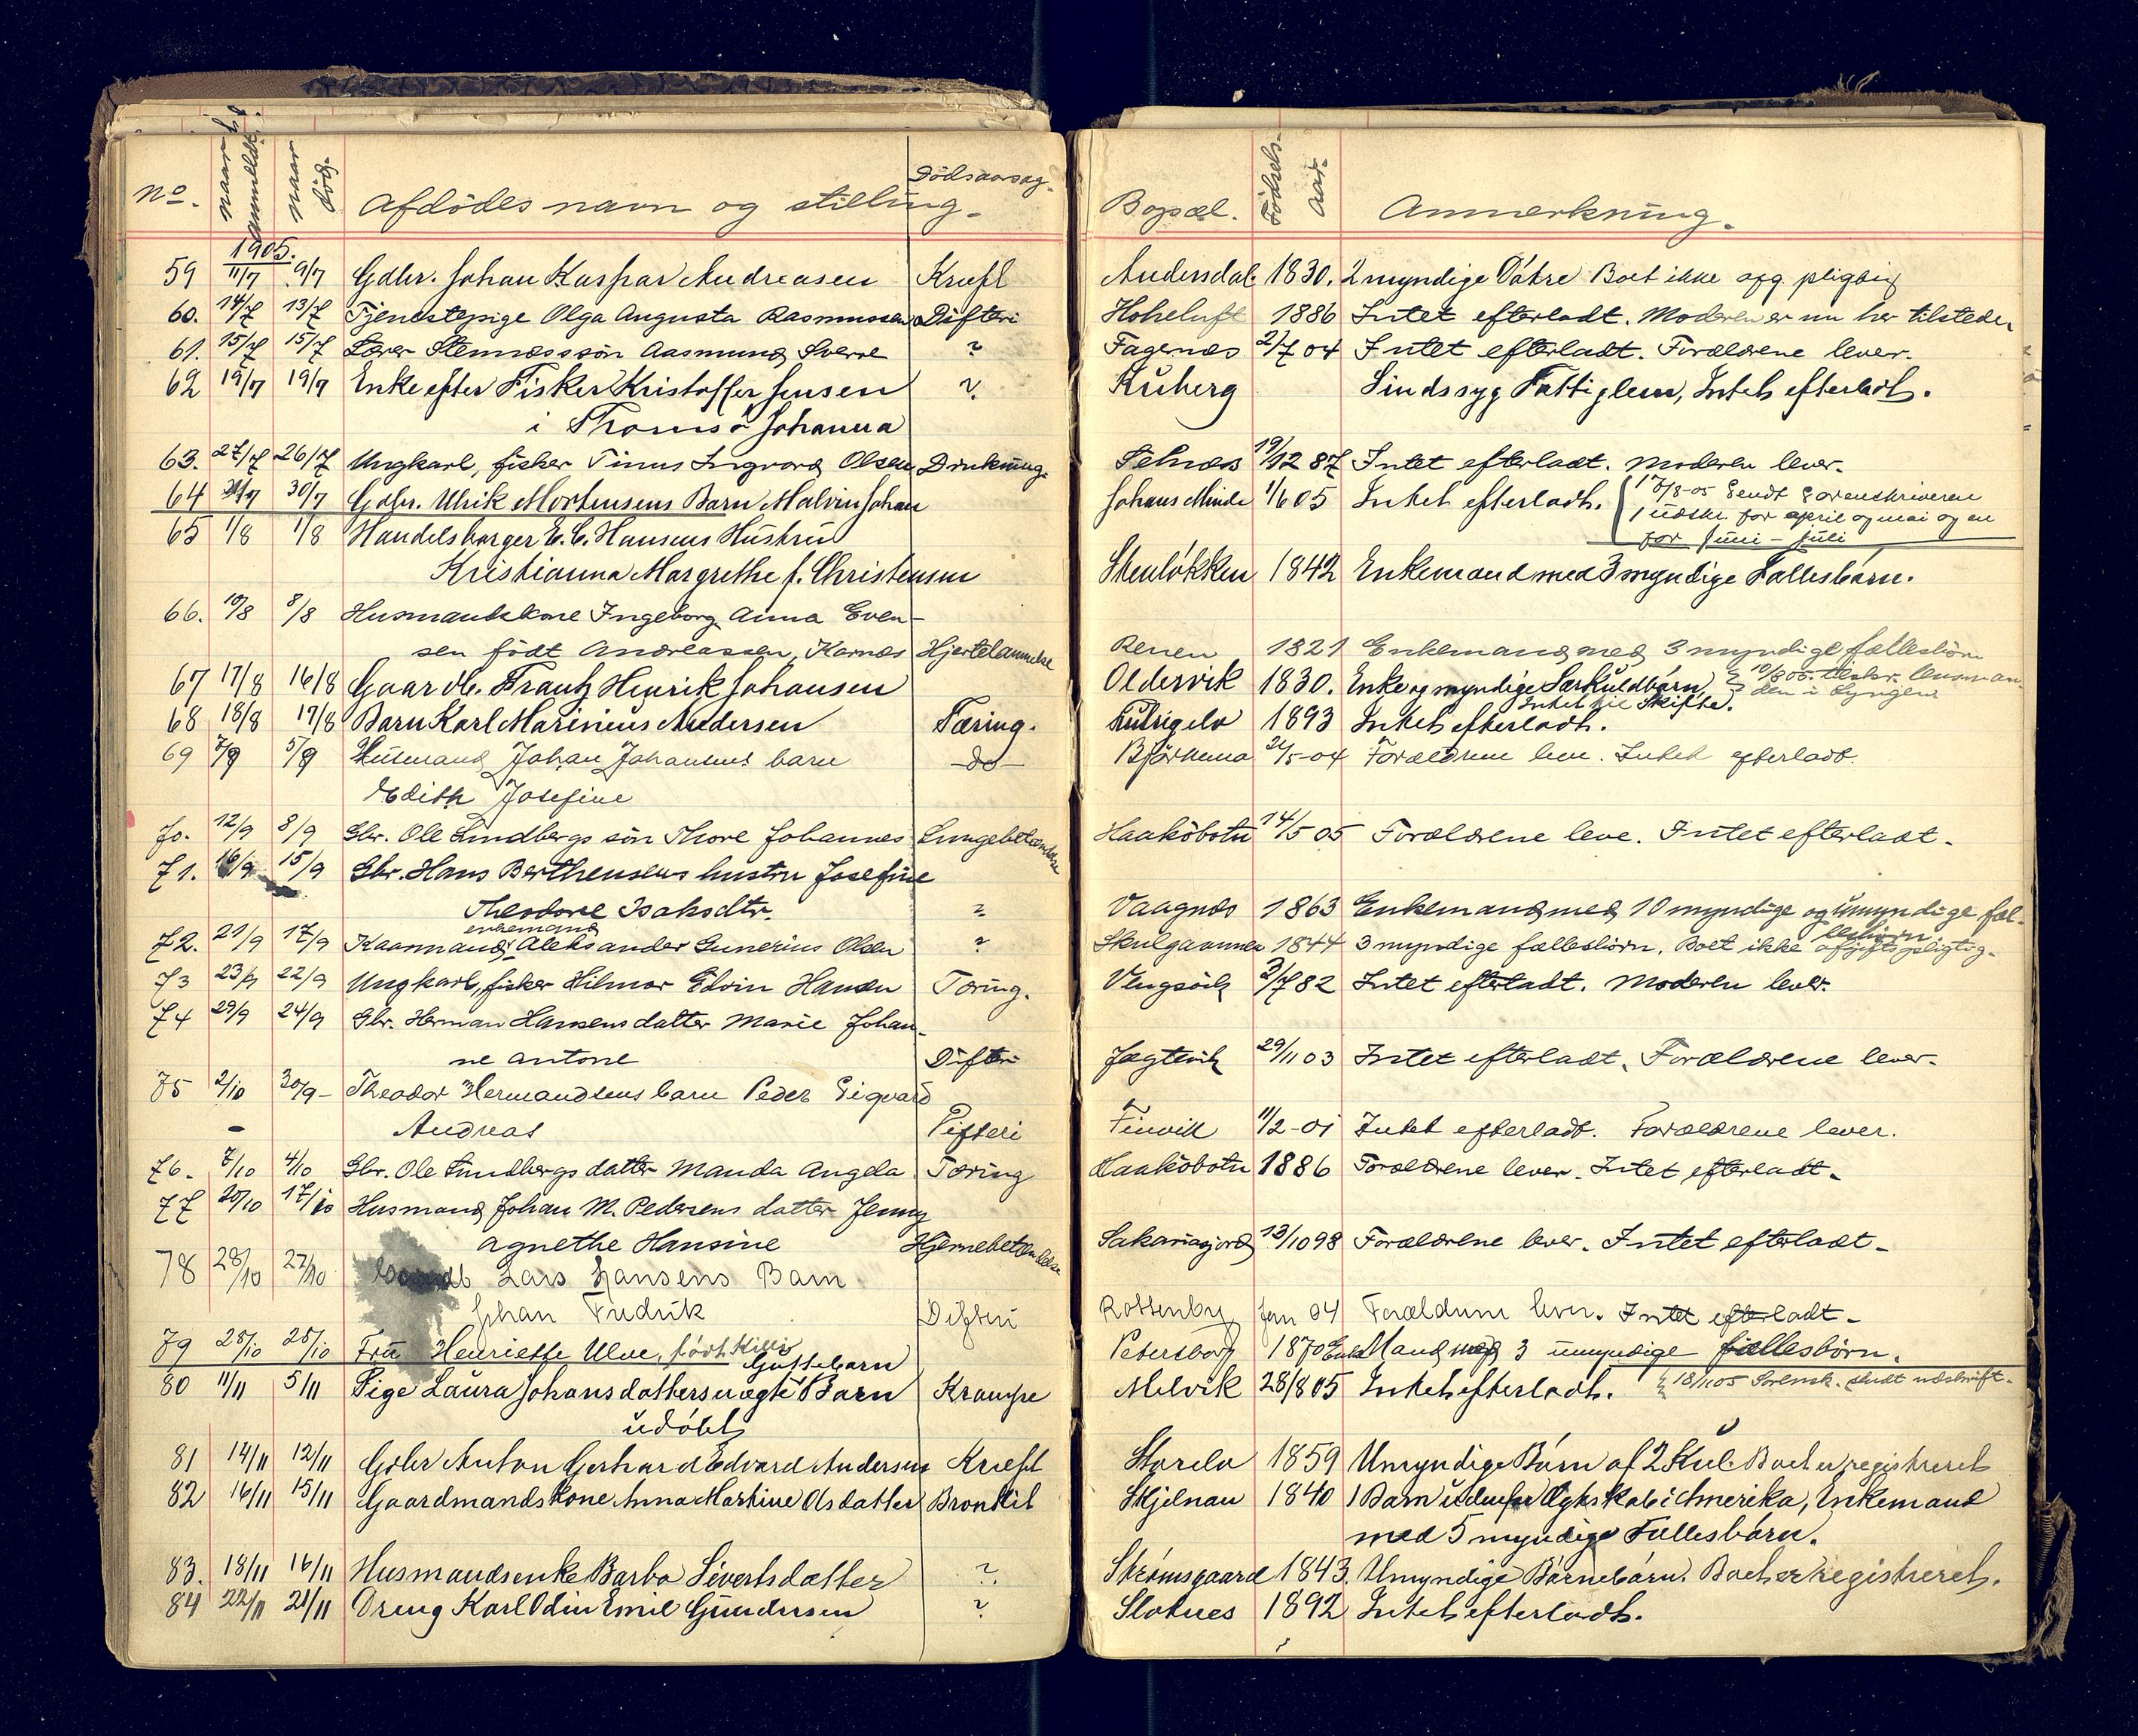 No. naar anmeldt. naar död. Afdödes navn og stilling. Dödsaarsag. Bopæl. Födsels-Aar. Anmerkning.
1905.
59 11/7 9/7 Gdbr. Johan Kaspar Andreasen Kræft Andersdal 1830. 2 myndige Døtre Boet ikke afg. pligtig
60. 14/7 13/7 Tjenestepige Olga Augusta Rasmussen Difteri Hoheluft 1886 Intet efterladt. Moderen er nu her tilstede
61. 15/7 15/7 Stennæs søn Aasmund Sverre ? Fagernæs 2/7 04 Intet efterladt. Forældrene lever.
62 19/7 19/7 Enke efter Fisker Kristoffer Jensen ? Kuberg Sindssyg Fattiglem, Intet efterladt.
i Tromsø Johanna
63. 27/7 26/7 Ungkarl, fisker Tinus Ingvard Olsen Drukning. Selnæs 19/12 87 Intet efterladt. Moderen lever.
64 31/7 30/7 Gdbr. Ulrik Mortensens Barn Malvin Johan Johans Minde 1/6 05 Intet efterladt. 17/8-05 Sendt Sorenskriveren
1 udskr. for april og mai og en
for juni - juli
65 1/8 1/8 Handelsborger E. C. Hansens Hustru
Kristianna Margrethe f. Christensen Stenløkken 1842 Enkemand med 3 myndige Fællesbørn.
66. 10/8 8/8 Husmandskone Ingeborg Anna Even-
sen født Andreassen, Karnæs Hjertelammelse Renen 1821 Enkemand med 3 myndige fællesbörn
67 17/8 16/8 Gaardb. Frantz Henrik Johansen Oldervik 1830. Enke og myndige Særkuldbørn,
Intet til Skifte.
68 18/8 17/8 Barn Karl Marinius Andersen Tæring. 1893 Intet efterladt.
69 7/9 5/9 Husmand Johan Johansens barn - do - 24/5-04 Forældrene leve. Intet efterladt.
Edith Josefine
70. 12/9 8/9 Gbr. Ole Lindbergs søn Thore Johannes Lungebetændelse Haaköbotn 14/5 05 Forældrene leve. Intet efterladt.
71. 16/9 15/9 Gbr. Hans Berthensens hustru Josefine
Theodore Isaksdtr. ? Vaagnæs 1863 Enkemand med 10 myndige og umyndige fæl-
lesbörn
72. 21/9 17/9 Kaarmand, enkemand Aleksander Gunerius Olsen ? Skulgammen 1844 3 myndige fællesbörn. Boet ikke afgiftspligtig.
73 23/9 22/9 Ungkarl, fisker Hilmar Edvin Hansen Tæring. Vengsöik 3/7 82 Intet efterladt. Moderen lever.
74 29/9 24/9 Gbr. Herman Hansens datter Marie Johan-
ne Antone Difteri Jægtevik 29/11 03 Intet efterladt. Forældrene lever.
75 2/10 30/9- Theodor Hermandsens barn Peder Sigvard
Andreas Difteri Finvik 11/2-01 Intet efterladt. Forældrene lever.
76. 7/10 4/10 Gbr. Ole Lindbergs datter Manda Angela Tæring Haaköbotn 1886 Forældrene lever. Intet efterladt.
77 20/10 17/10 Husmand Johan M. Pedersens datter Jenny
Agnethe Hansine Hjernebetændelse Sakariasjord 13/10 98 Forældrene lever. Intet efterladt.
78 28/10 27/10 Lars Hansens Barn
Johan Fredrik Difteri Rottenby Jan 04 Forældrene lever. Intet efterladt.
79 28/10 25/10 Fru Henriette Ulve, född Petersborg 1870 Enkemand med 3 umyndige fællesbörn.
80 11/11 5/11 Pige Laura Johansdatters uægte Guttebarn Barn Krampe Melvik 28/8 05 Intet efterladt. 18/11 05 Sorensk. sendt udskrift.
udøbt
81 14/11 12/11 Gdbr Anton Gerhard Edvard Andersen Kræft Storelv 1859 Umyndige Børn af 2 Kul. Boet er registreret
82 16/11 15/11 Gaardmandskone Anna Martine Olsdatter Bronkit Skjelnan 1840 1 Barn udenfor Ægteskab i Amerika, Enkemand
med 5 myndige Fællesbørn.
83. 18/11 16/11 Husmandsenke Barbo Sivertsdatter ? Strømsgaard 1843. Umyndige Børnebørn. Boet er registreret.
84 22/11 21/11 Dreng Karl Odin Emil Gundersen ? Sloknes 1892 Intet efterladt.